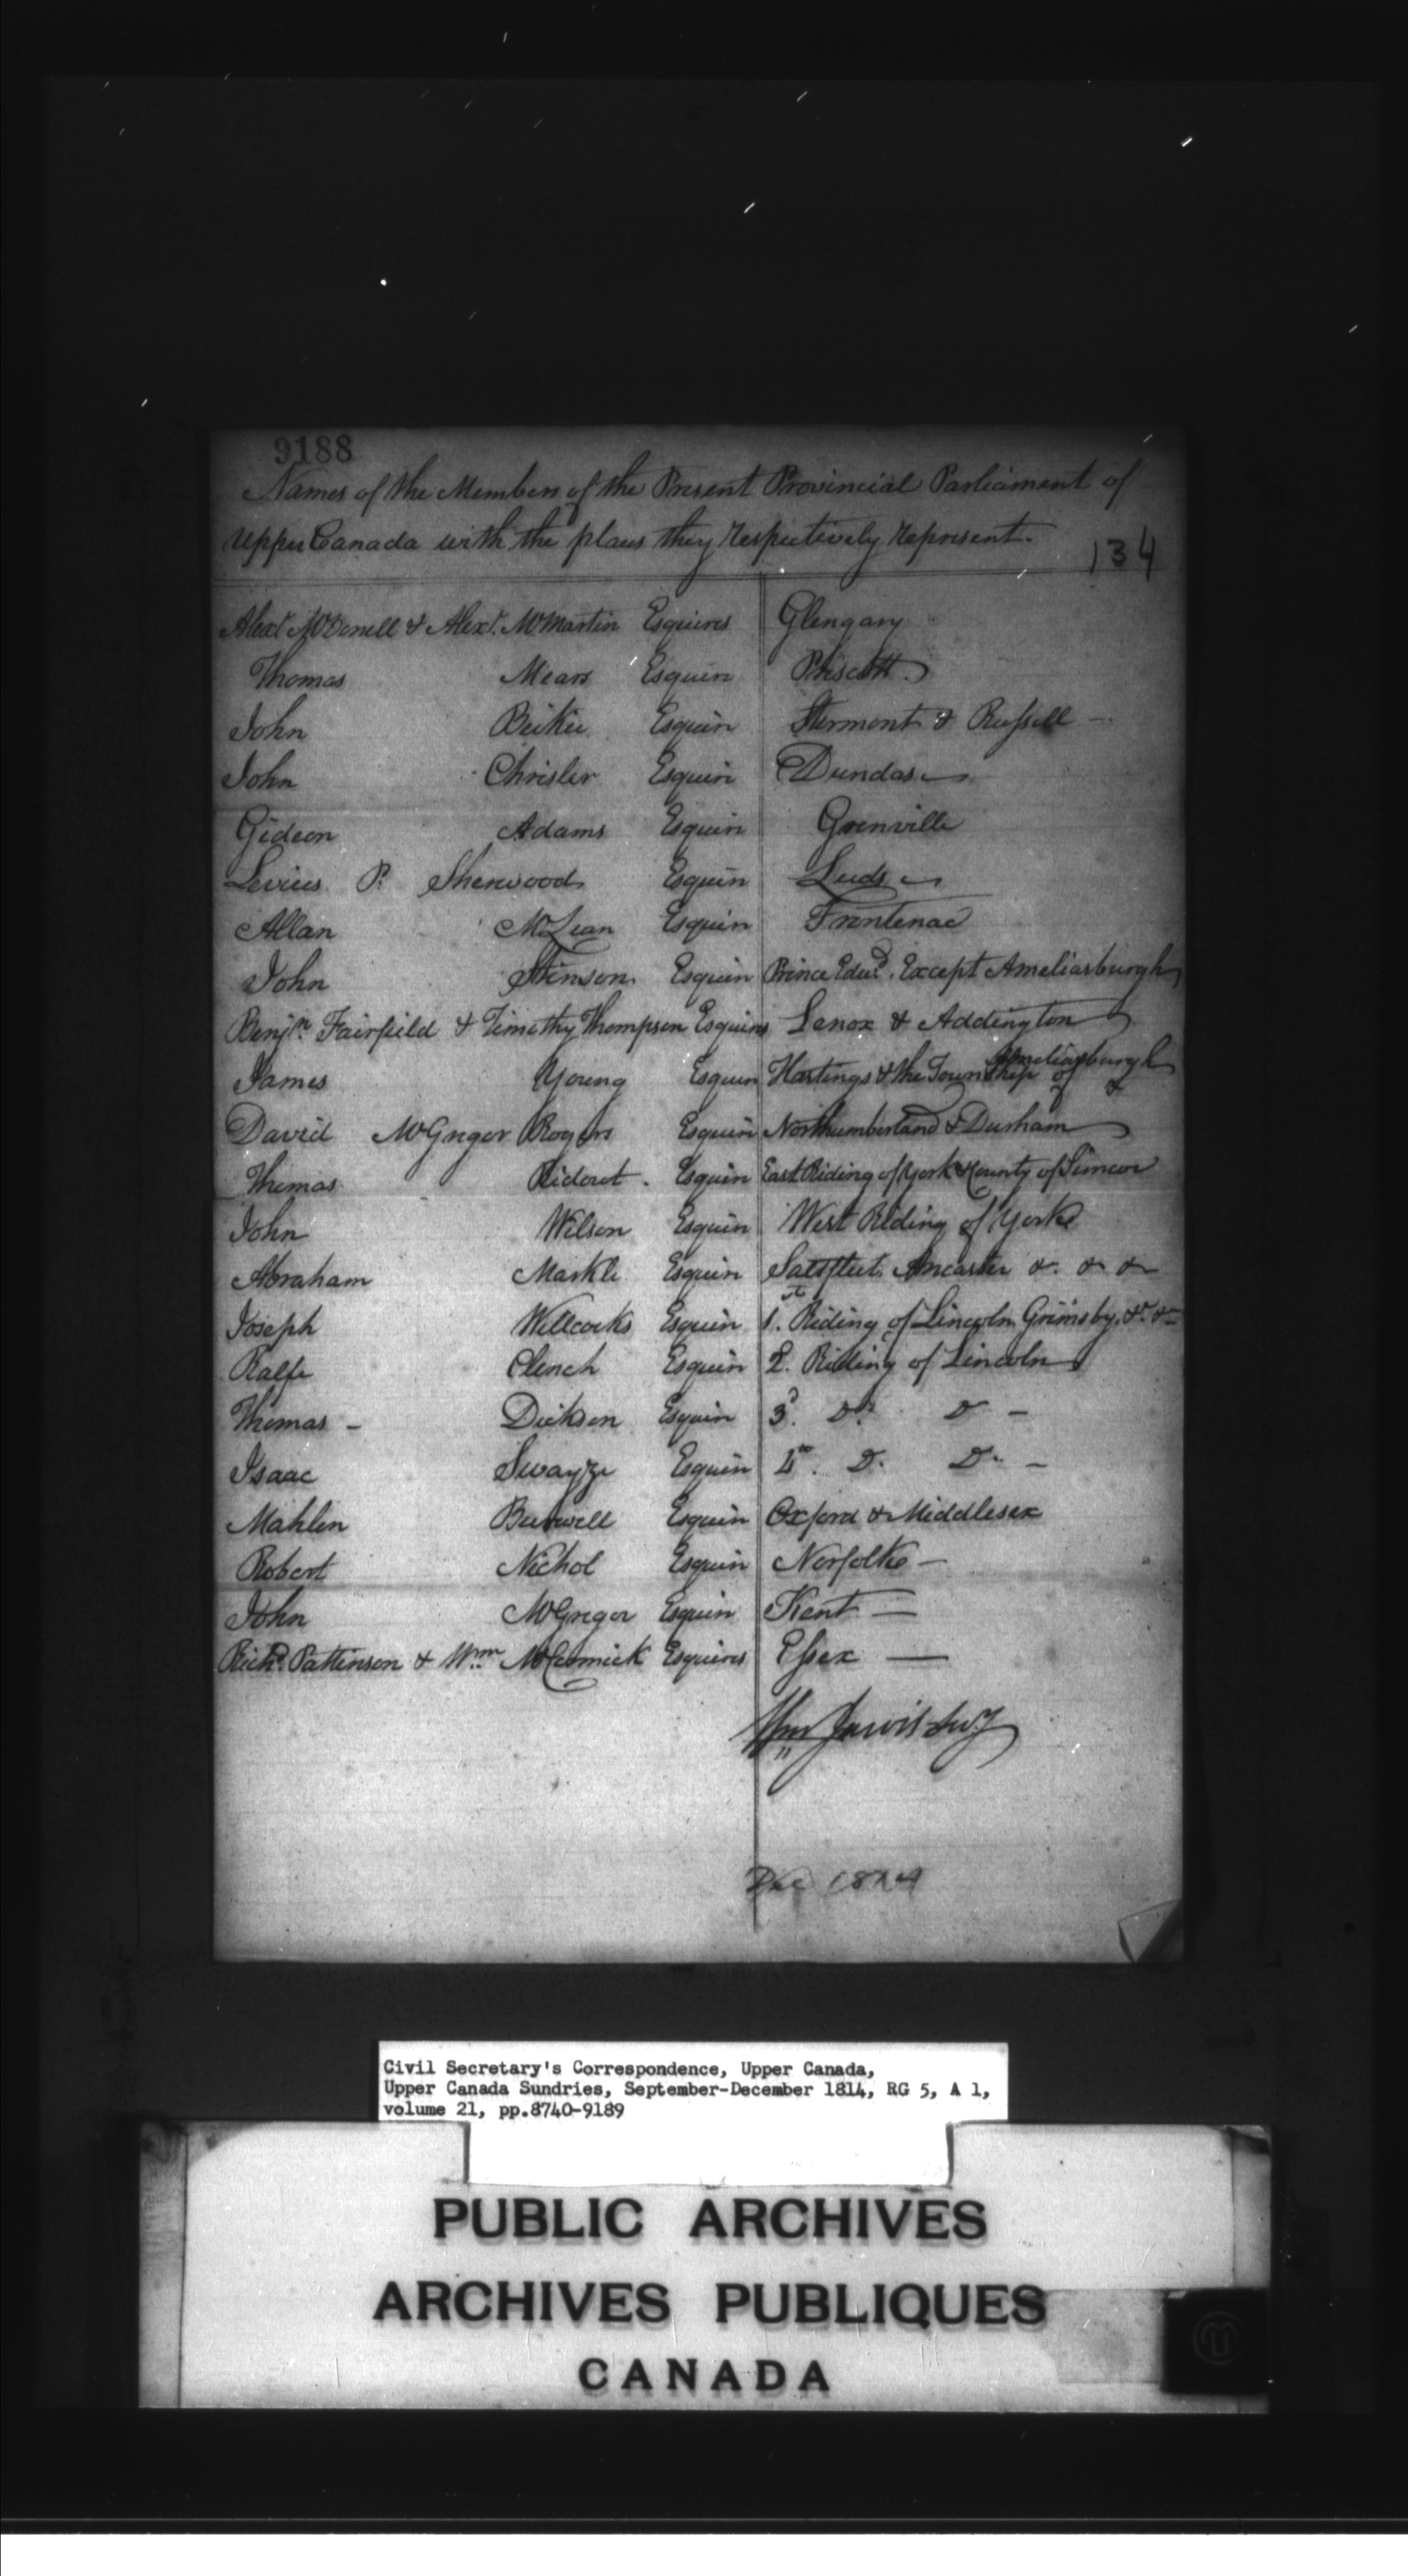 9188
Names of the Members of the Present Provincial Parliament of
Upper Canada with the places they respectively represent.
134
Alexr. McDonell & Alexr. McMartin Esquires Glengary
Thomas Mears Esquire Prescott
John Beikie Esquire Stormont & Russell –
John Chrisler Esquire Dundas
Gideon Adams Esquire Grenville
Levius P. Sherwood Esquire Leeds
Allan McLean Esquire Frontenac
John Stinson Esquire Prince Edwd. Except Ameliasburgh
Benjn. Fairfield & Timothy Thompson Esquires Lenox & Addington
James Young Esquire Hastings & the Township of Ameliasburgh &
David McGregor Rogers Esquire Northumberland & Durham
Thomas Ridout. Esquire East Riding of York & County of Simcoe
John Wilson Esquire West Riding of York
Abraham Markle Esquire Saltfleet Ancaster &. & &
Joseph Willcocks Esquire 1st. Riding of Lincoln Grimsby. &c &c
Ralfe Clench Esquire 2. Riding of Lincoln
Thomas – Dickson Esquire 3d. Do. Do –
Isaac Swayze Esquire 4th. D. D. –
Mahlon Burwell Esquire Oxford & Middlesex
Robert Nichol Esquire Norfolk –
John McGregor Esquire Kent —
Richd. Pattinson & Wm. McCormick Esquires Essex —
Wm Jarvis Secy
Dec 1814
Civil Secretary's Correspondence, Upper Canada,
Upper Canada Sundries, September-December 1814, RG 5, A 1,
volume 21, pp.8740-9189
PUBLIC ARCHIVES
ARCHIVES PUBLIQUES
CANADA